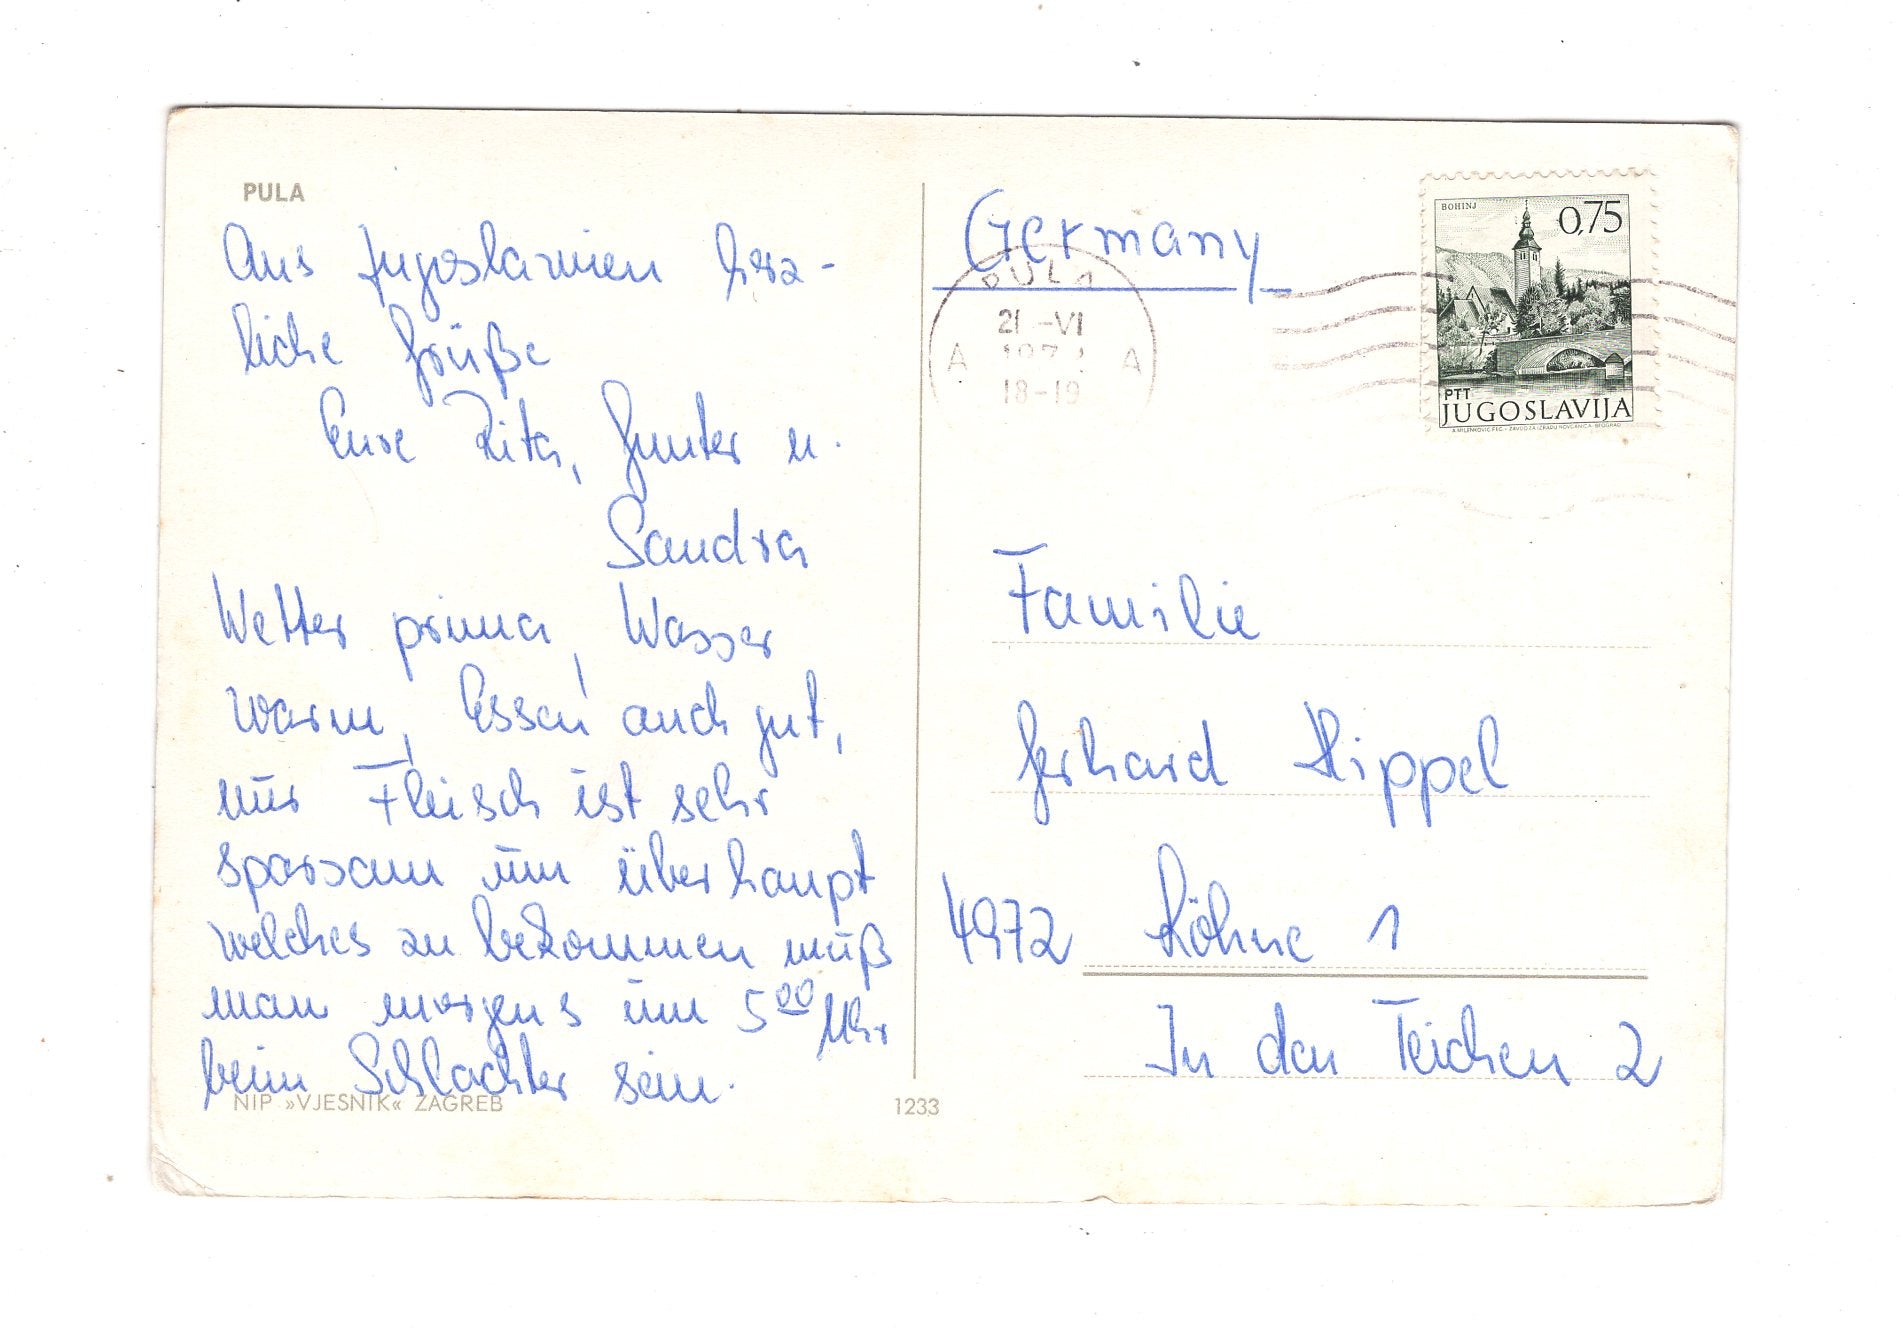 PULA
Aus Jugoslawien herz-
liche Grüße
Eure Rita, Gunter u.
Sandra
Wetter prima, Wasser
warm, Essen auch gut,
nur Fleisch ist sehr
sparsam um überhaupt
welches zu bekommen muß
man morgens um 5⁰⁰ Uhr
beim Schlachter sein.
NIP »VJESNIK« ZAGREB
1233
Germany
PULA
21.-VI
A A
18-19
BOHINJ
0,75
PTT
JUGOSLAVIJA
Familie
Gerhard Hippel
4972 Löhne 1
In den Teichen 2